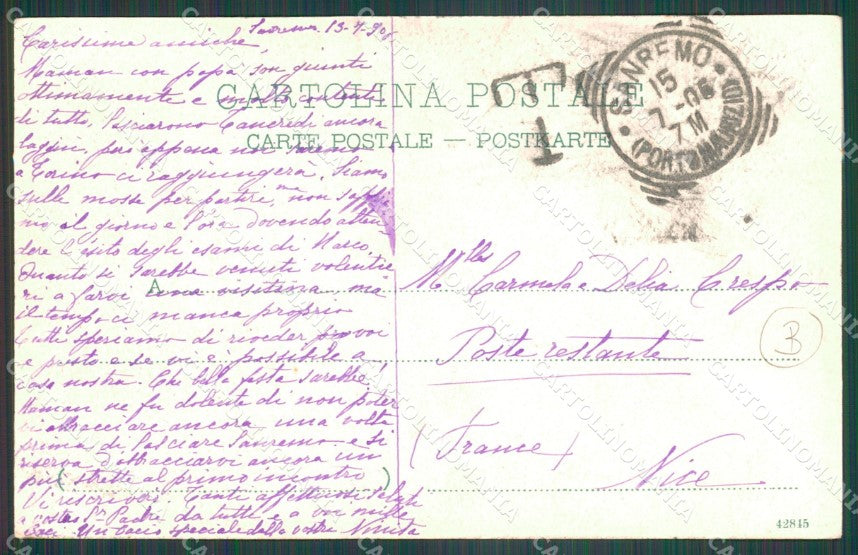 Sanremo 13-7-906
Carissime amiche,
Maman con papà son giunti
ottimamente e
di tutto, lasciarono ancora
laggiù, però appena noi saremo
a Torino ci raggiungerà. Siamo
sulle mosse per partire, ma non sappia
mo il giorno e l'ora, dovendo atten
dere l'esito degli esami di Marco.
Quanto si sarebbe venuti volentie
ri a farvi una visitina ma
il tempo ci manca proprio
Tutti speriamo di riveder voi
e presto e se vi è possibile a
casa nostra. Che bella festa sarebbe!
Maman ne fu dolente di non poter
vi abbracciare ancora una volta
prima di lasciare Sanremo e si
riserva d'abbracciarvi ancora un
più strette al primo incontro
Vi riscriverò. Tanti affettuosi saluti
a vostro Sr Padre da tutti e a voi mille
baci. Un bacio speciale dalla vostra Ninita
CARTOLINA POSTALE
CARTE POSTALE — POSTKARTE
T
SANREMO
15
7-06
7M
(PORTO MAURIZIO)
A Mlles Carmela e Delia Crespo
Poste restante
(France) Nice
B
42845
CARTOLINOMANIA